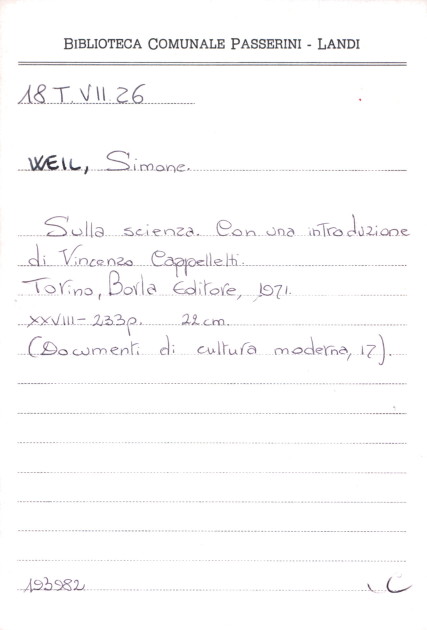 BIBLIOTECA COMUNALE PASSERINI - LANDI
18 T.VII.26
WEIL, Simone.
Sulla scienza. Con una introduzione
di Vincenzo Cappelletti.
Torino, Borla Editore, 1971.
XXVIII-233p. 22cm.
(Documenti di cultura moderna, 17).
193982